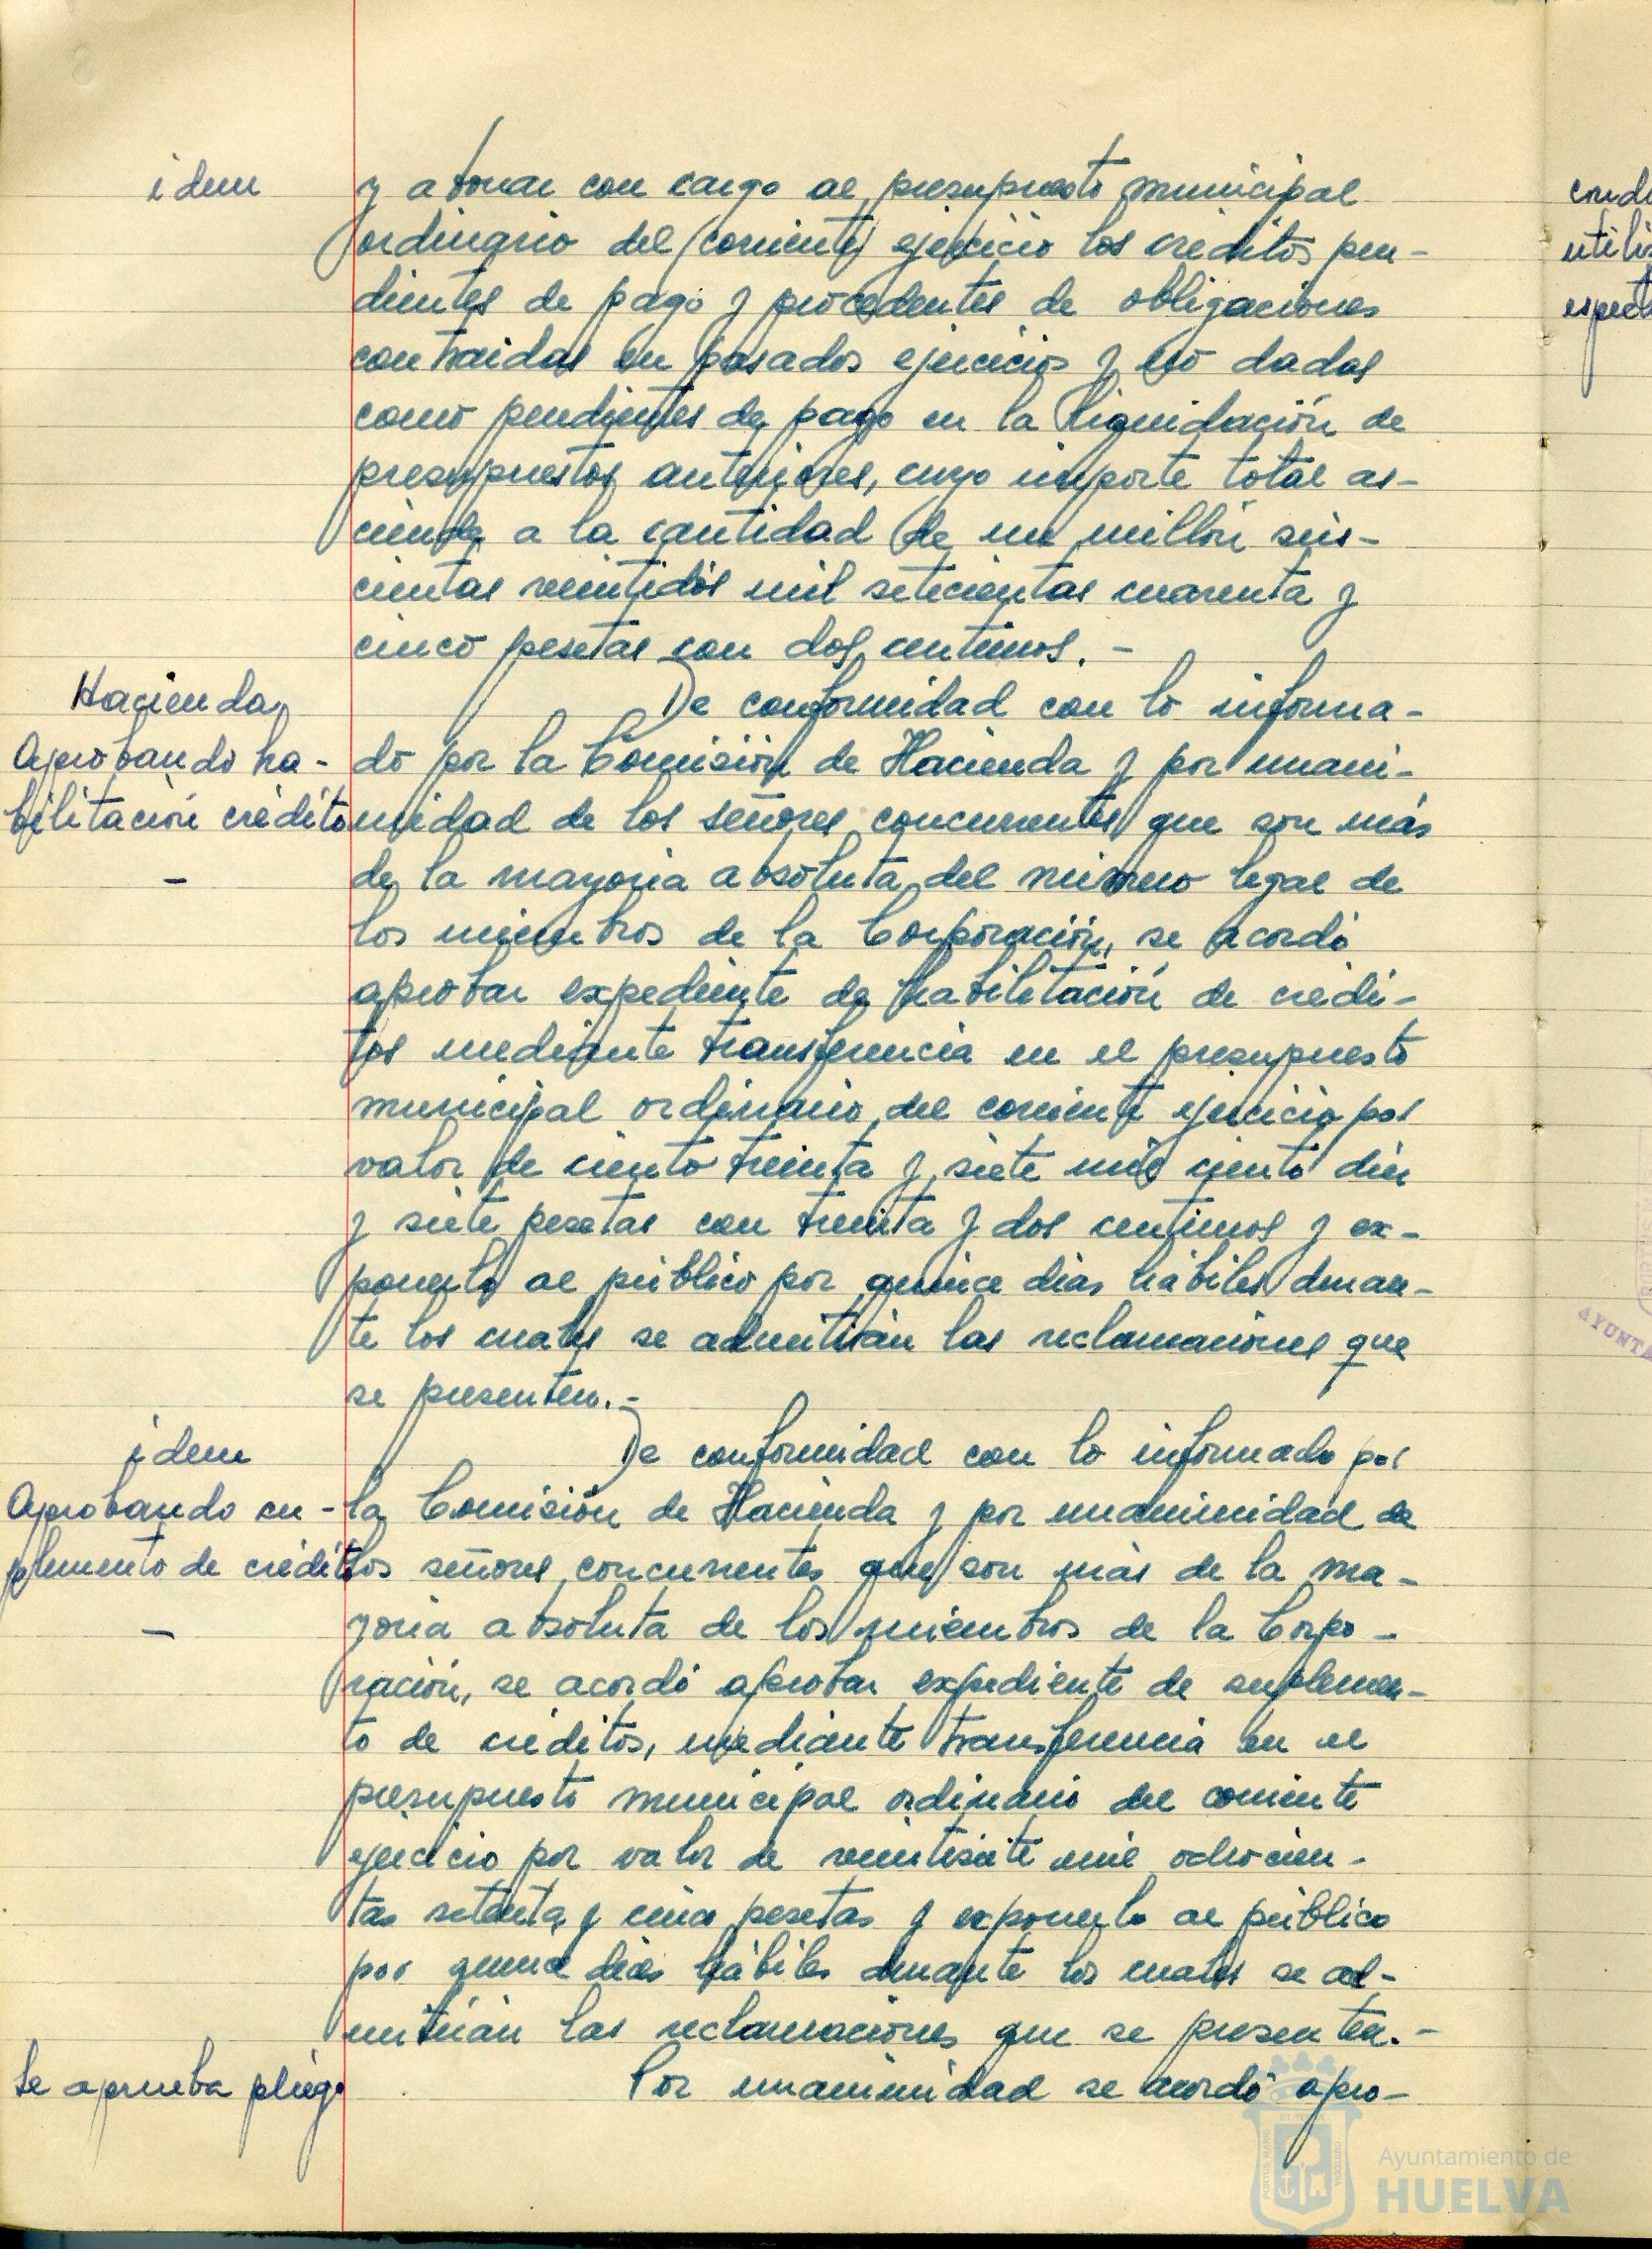 idem
y abonar con cargo al presupuesto municipal
ordinario del corriente ejercicio los créditos pen-
dientes de pago y procedentes de obligaciones
contraidas en pasados ejercicios y no dadas
como pendientes de pago en la liquidación de
presupuestos anteriores, cuyo importe total as-
ciende a la cantidad de un millón seis-
cientas veintidós mil setecientas cuarenta y
cinco pesetas con dos centimos. -
Hacienda
Aprobando ha-
bilitación crédito
-
De conformidad con lo informa-
do por la Comisión de Hacienda y por unani-
midad de los señores concurrentes que son más
de la mayoria absoluta del número legal de
los miembros de la Corporación, se acordó
aprobar expediente de habilitación de crédi-
tos mediante transferencia en el presupuesto
municipal ordinario del corriente ejercicio por
valor de ciento treinta y siete mil ciento diez
y siete pesetas con treinta y dos centimos y ex-
ponerlo al público por quince dias hábiles duran-
te los cuales se admitirán las reclamaciones que
se presenten. -
idem
Aprobando su-
plemento de crédito
-
De conformidad con lo informado por
la Comisión de Hacienda y por unanimidad de
los señores concurrentes que son más de la ma-
yoria absoluta de los miembros de la Corpo-
ración, se acordó aprobar expediente de suplemen-
to de créditos, mediante transferencia en el
presupuesto municipal ordinario del corriente
ejercicio por valor de veintisiete mil ochocien-
tas setenta y cinco pesetas y exponerlo al público
por quince dias hábiles durante los cuales se ad-
mitirán las reclamaciones que se presenten. -
Se aprueba pliego
Por unanimidad se acordó apro-
utilis
espect
AYUNTA
PORTUS MARIS
ET TERRAE
CUSTODIA
Ayuntamiento de
HUELVA